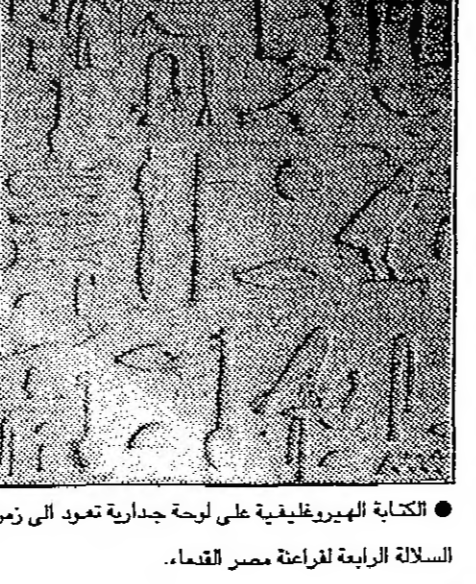 ● الكتابة الهيروغليفية على لوحة جدارية تعود الى
السلالة الرابعة لفراعنة مصر القدماء.